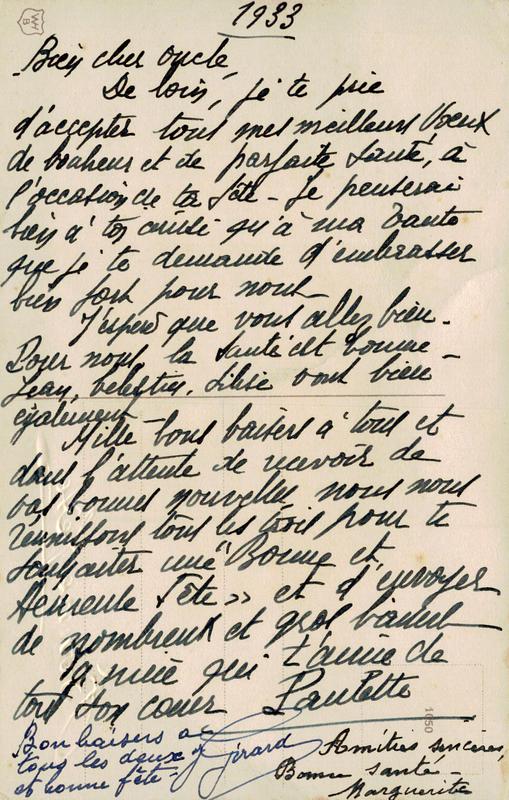 WH
B
1933
Bien cher oncle
De loin, je te prie
d'accepter tous mes meilleurs Voeux
de bonheur et de parfaite Santé, à
l'occasion de ta fête - Je penserai
bien à toi qu'à ma Tante
que je te demande d'embrasser
bien fort pour nous
J'espère que vous allez bien.
Pour nous la Santé est bonne -
Jean, vont bien
également -
Mille bons baisers à tous et
dans l'attente de recevoir de
vos bonnes nouvelles nous nous
réunissons tous les trois pour te
souhaiter une "Bonne et
Heureuse Fête" et d'envoyer
de nombreux et gros baisers
Ta nièce qui t'aime de
tout son coeur Paulette
Bon baisers a
tous les deux Girard
et bonne fête -
Amitiés sincères,
Bonne santé -
Marguerite
1050